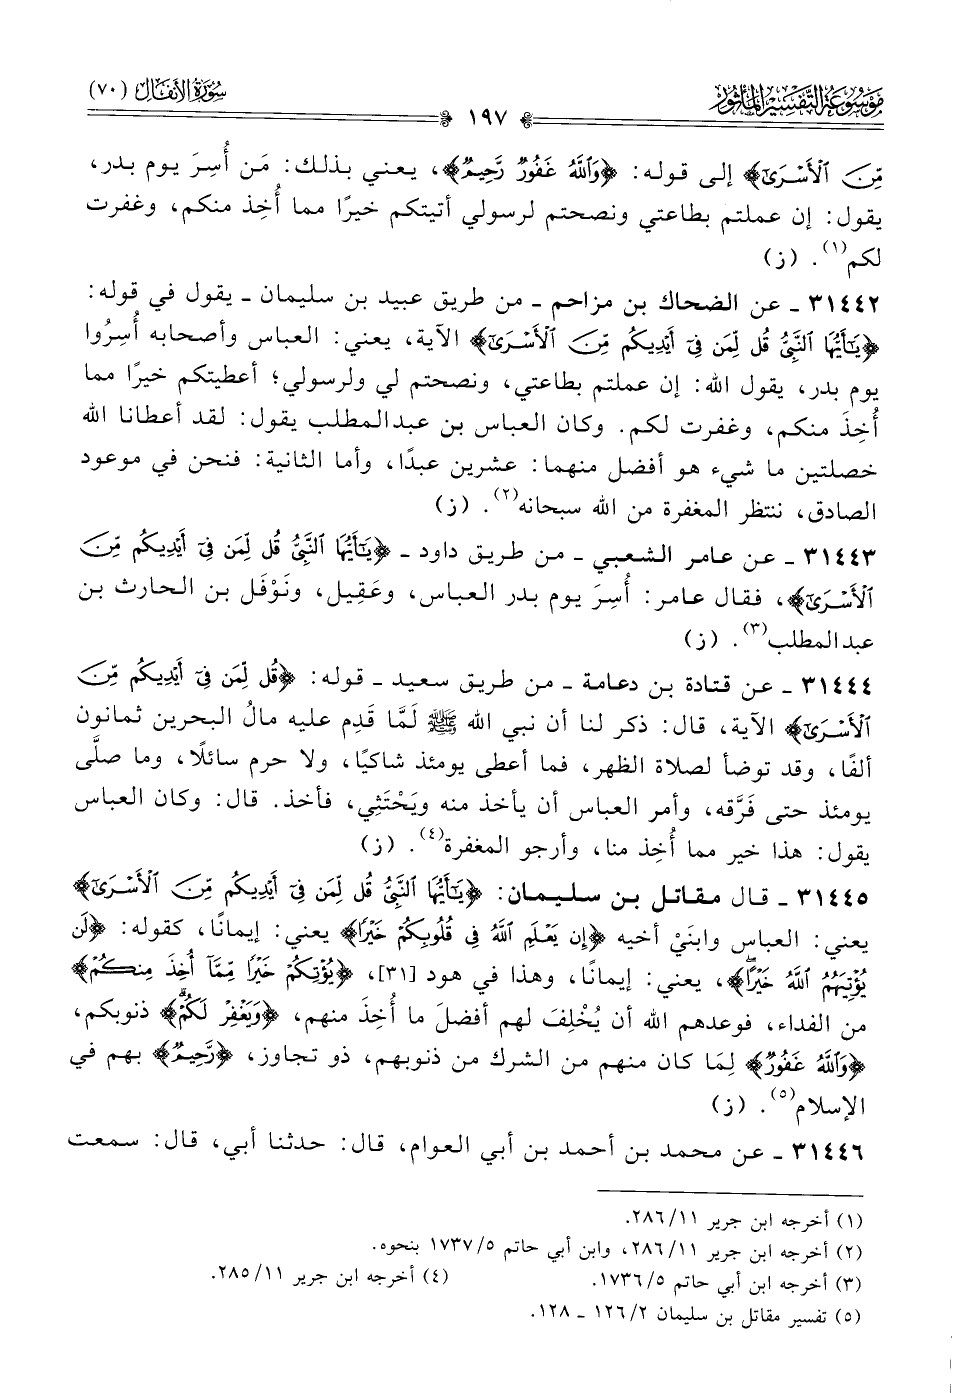 مَوْسُوعَة التَّفْسِيْر المَأْثُور
سُورَةُ الأَنفَال (٧٠)
١٩٧
مِّنَ ٱلْأَسْرَىٰٓ﴾ إلى قوله: ﴿وَٱللَّهُ غَفُورٌ رَّحِيمٌ﴾، يعني بذلك: مَن أُسِرَ يوم بدر،
يقول: إن عملتم بطاعتي ونصحتم لرسولي أتيتكم خيرًا مما أُخِذ منكم، وغفرت
لكم(١). (ز)
٣١٤٤٢ ـ عن الضحاك بن مزاحم ـ من طريق عبيد بن سليمان ـ يقول في قوله:
﴿يَٰٓأَيُّهَا ٱلنَّبِىُّ قُل لِّمَن فِىٓ أَيْدِيكُم مِّنَ ٱلْأَسْرَىٰٓ﴾ الآية، يعني: العباس وأصحابه أُسِرُوا
يوم بدر، يقول الله: إن عملتم بطاعتي، ونصحتم لي ولرسولي؛ أعطيتكم خيرًا مما
أُخِذَ منكم، وغفرت لكم. وكان العباس بن عبدالمطلب يقول: لقد أعطانا الله
خصلتين ما شيء هو أفضل منهما: عشرين عبدًا، وأما الثانية: فنحن في موعود
الصادق، ننتظر المغفرة من الله سبحانه(٢). (ز)
٣١٤٤٣ ـ عن عامر الشعبي ـ من طريق داود ـ ﴿يَٰٓأَيُّهَا ٱلنَّبِىُّ قُل لِّمَن فِىٓ أَيْدِيكُم مِّنَ
ٱلْأَسْرَىٰٓ﴾، فقال عامر: أُسِرَ يوم بدر العباس، وعَقِيل، ونَوْفَل بن الحارث بن
عبدالمطلب(٣). (ز)
٣١٤٤٤ ـ عن قتادة بن دعامة ـ من طريق سعيد ـ قوله: ﴿قُل لِّمَن فِىٓ أَيْدِيكُم مِّنَ
ٱلْأَسْرَىٰٓ﴾ الآية، قال: ذكر لنا أن نبي الله ﷺ لَمَّا قَدِم عليه مالُ البحرين ثمانون
ألفًا، وقد توضأ لصلاة الظهر، فما أعطى يومئذ شاكيًا، ولا حرم سائلًا، وما صلَّى
يومئذ حتى فَرَّقه، وأمر العباس أن يأخذ منه ويَحْتَثِي، فأخذ. قال: وكان العباس
يقول: هذا خير مما أُخِذ منا، وأرجو المغفرة(٤). (ز)
٣١٤٤٥ ـ قال مقاتل بن سليمان: ﴿يَٰٓأَيُّهَا ٱلنَّبِىُّ قُل لِّمَن فِىٓ أَيْدِيكُم مِّنَ ٱلْأَسْرَىٰٓ﴾
يعني: العباس وابنَيْ أخيه ﴿إِن يَعْلَمِ ٱللَّهُ فِى قُلُوبِكُمْ خَيْرًا﴾ يعني: إيمانًا، كقوله: ﴿لَن
يُؤْتِيَهُمُ ٱللَّهُ خَيْرًا﴾، يعني: إيمانًا، وهذا في هود [٣١]، ﴿يُؤْتِكُمْ خَيْرًا مِّمَّآ أُخِذَ مِنكُمْ﴾
من الفداء، فوعدهم الله أن يُخْلِفَ لهم أفضلَ ما أُخِذَ منهم، ﴿وَيَغْفِرْ لَكُمْ﴾ ذنوبكم،
﴿وَٱللَّهُ غَفُورٌ﴾ لِمَا كان منهم من الشرك من ذنوبهم، ذو تجاوز، ﴿رَّحِيمٌ﴾ بهم في
الإسلام(٥). (ز)
٣١٤٤٦ ـ عن محمد بن أحمد بن أبي العوام، قال: حدثنا أبي، قال: سمعت
(١) أخرجه ابن جرير ٢٨٦/١١.
(٢) أخرجه ابن جرير ٢٨٦/١١، وابن أبي حاتم ١٧٣٧/٥ بنحوه.
(٣) أخرجه ابن أبي حاتم ١٧٣٦/٥. (٤) أخرجه ابن جرير ٢٨٥/١١.
(٥) تفسير مقاتل بن سليمان ١٢٦/٢ ـ ١٢٨.